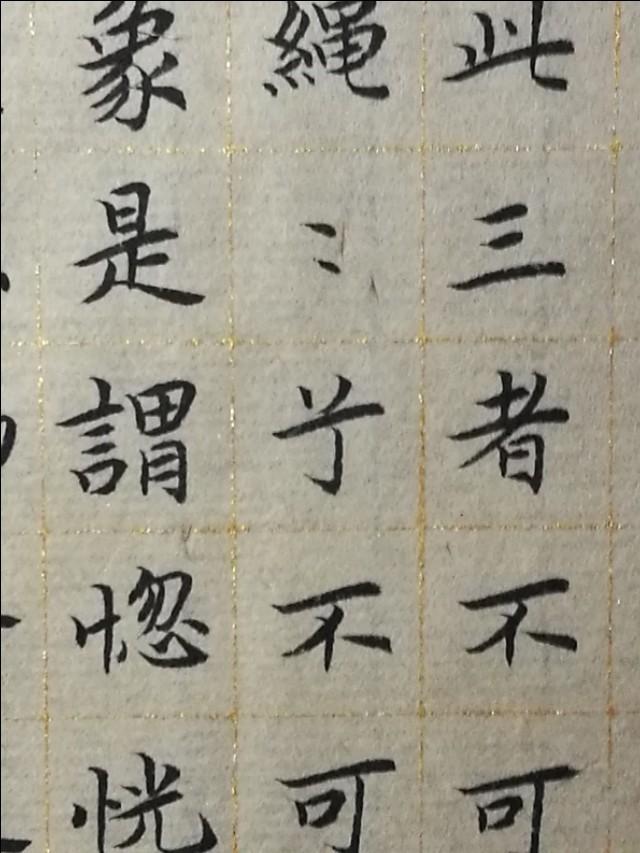 此三者不可
繩〻兮不可
象是謂惚恍